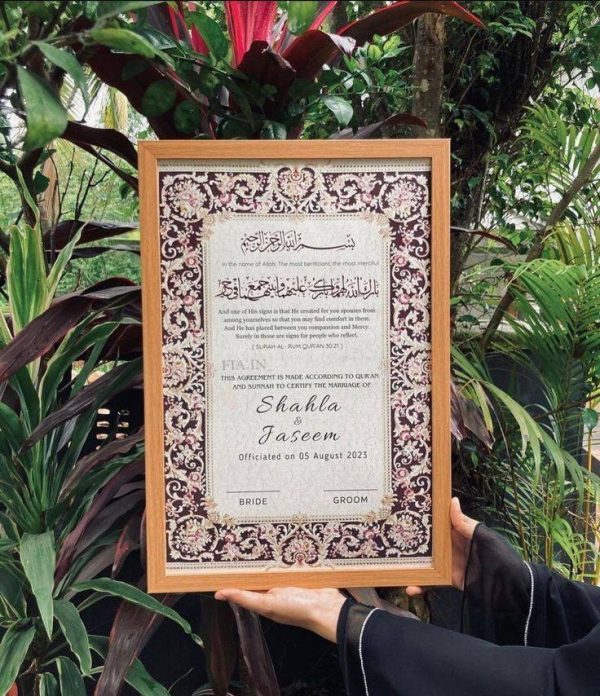 بسم الله الرحمن الرحيم
In the name of Allah. The most benificient, the most merciful
And one of His signs is that He created for you spouses from
among yourselves so that you may find comfort in them.
And He has placed between you compassion and Mercy.
Surely in those are signs for people who reflect.
[ SURAH AL- RUM QUR'AN 30:21 ]
FIA.IN
THIS AGREEMENT IS MADE ACCORDING TO QUR'AN
AND SUNNAH TO CERTIFY THE MARRIAGE OF
Shahla
&
Jaseem
Officiated on 05 August 2023
BRIDE GROOM